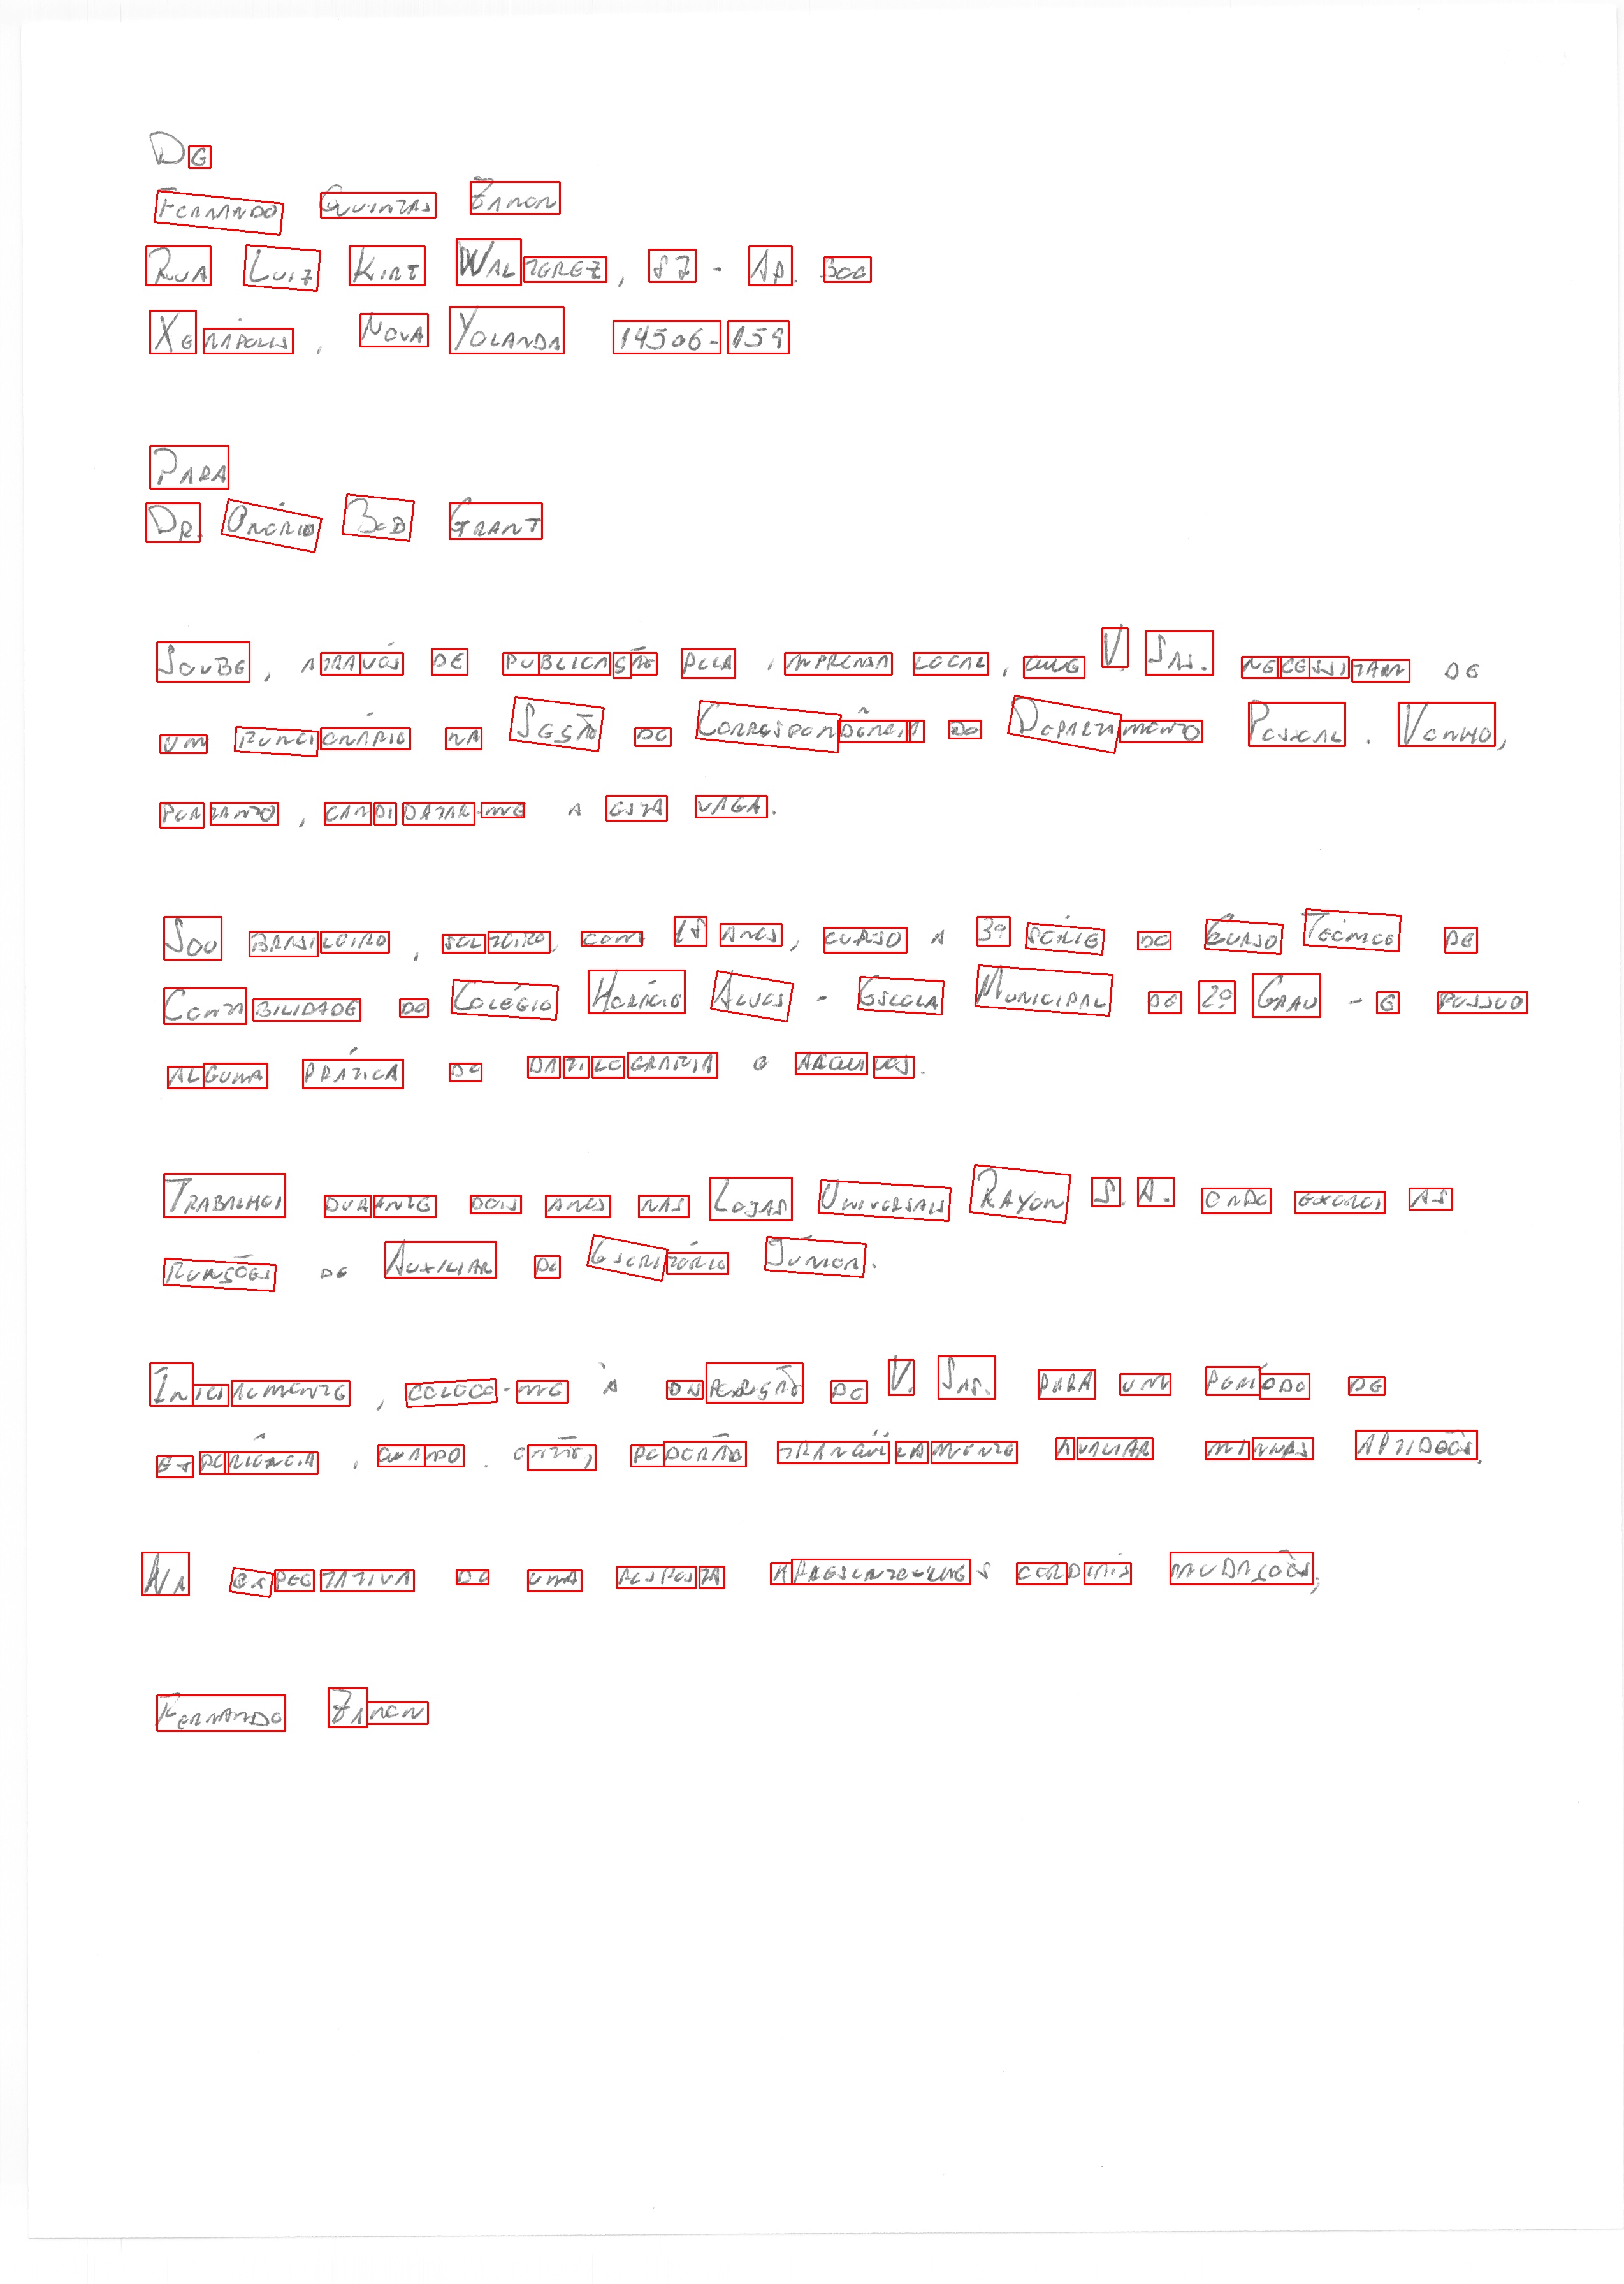 De
Fernando Quintas Zanon
Rua Luiz Kirt Walterez, 87 - Ap. 300
Xerápolis, Nova Yolanda 14506-159
Para
Dr. Onório Bob Grant
Soube, através de publicação pela imprensa local, que V. Sas. necessitam de
um funcionário na Seção de Correspondência do Departamento Pessoal. Venho,
portanto, candidatar-me a esta vaga.
Sou brasileiro, solteiro, com 18 anos, curso a 3ª série do Curso Técnico de
Contabilidade do Colégio Horácio Alves - Escola Municipal de 2º Grau - e possuo
alguma prática de datilografia e arquivos.
Trabalhei durante dois anos nas Lojas Universais Rayon S.A. onde exerci as
funções de Auxiliar de Escritório Júnior.
Inicialmente, coloco-me à disposição de V. Sas. para um período de
experiência, quando, então, poderão tranqüilamente avaliar minhas aptidões.
Na expectativa de uma resposta cordiais
Fernando Zanon